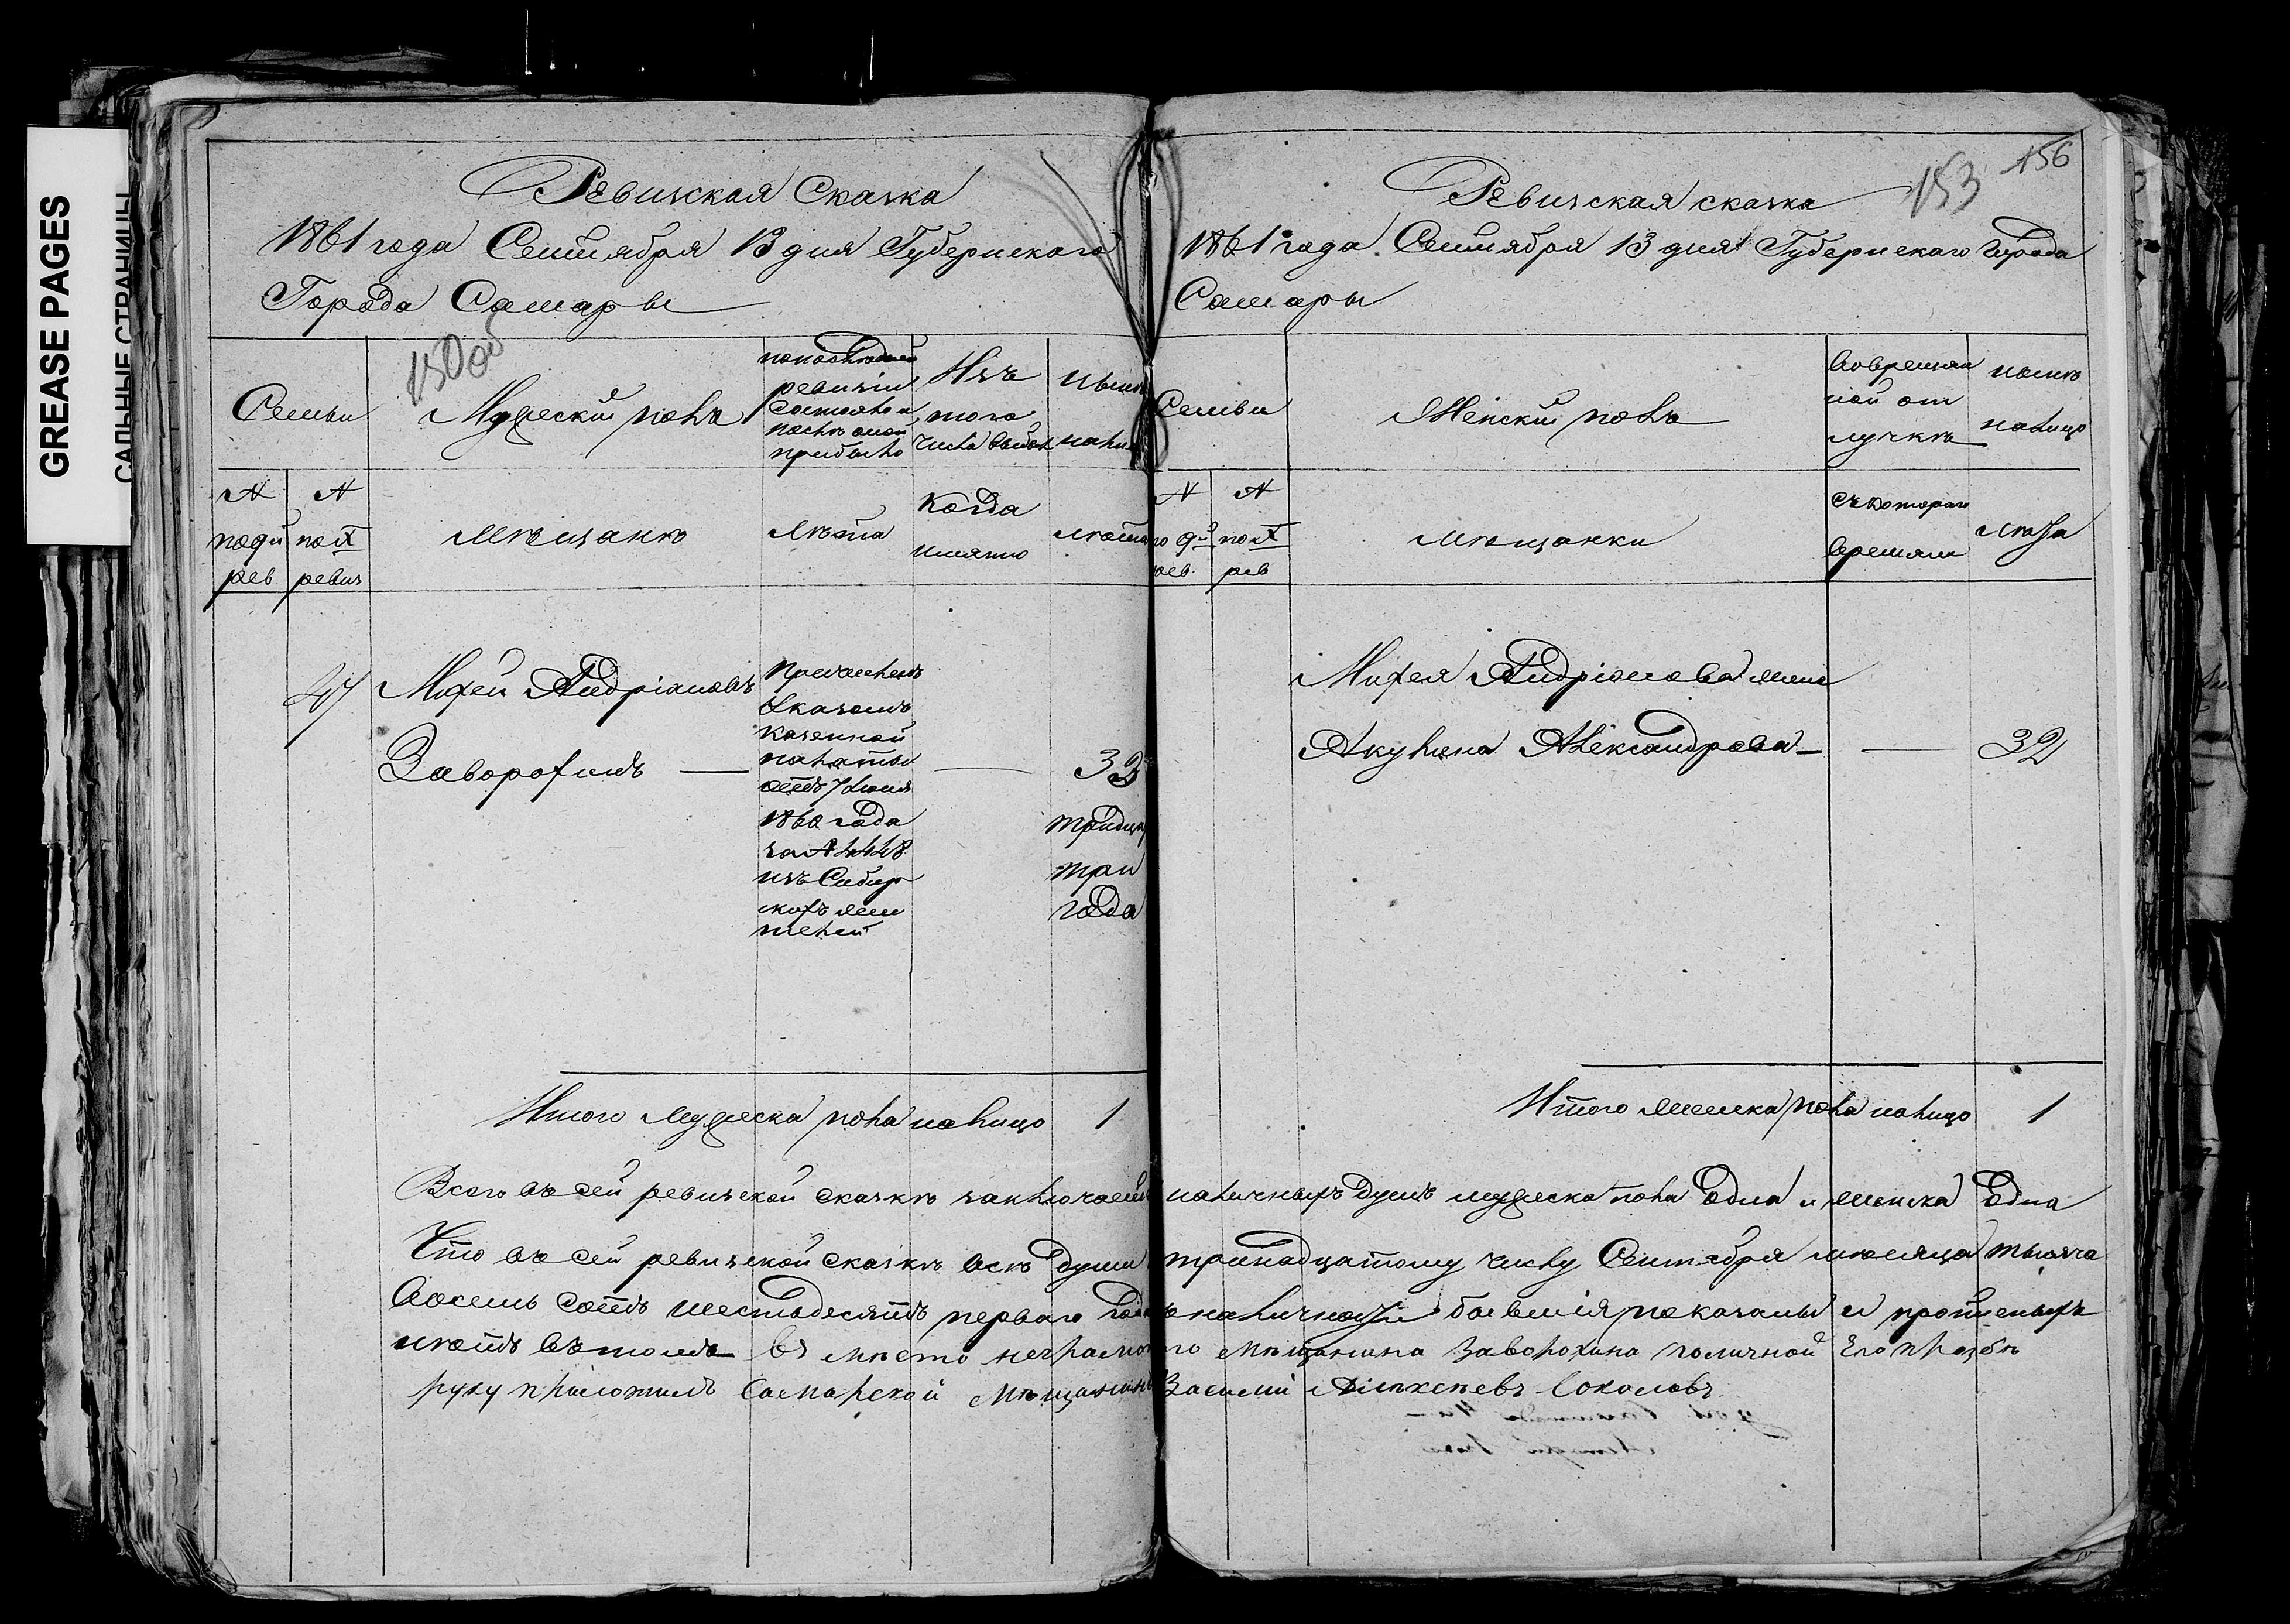 GREASE PAGES
САЛЬНЫЕ СТРАНИЦЫ
Ревизская Сказка
1861 года Сентября 13 дня Губернскаго
Города Самары
Семьи
Мужескій полъ
по последней
ревизіи
состояло и
после оной
прибыло
Изъ
того
числа выбыло
ныне
налицо
N
по 9й
рев
N
по X
ревиз
Мѣщанѣ
Лѣта
Когда
имянно
Лѣта
47
Михей Андріановъ
Заворохинъ
Причисленъ
Указомъ
Казенной
палаты
отъ 7 Іюня
1860 года
за N 4448
изъ Сибир
скихъ жи
телей
33
тридцать
три
года
Итого мужеска пола налицо 1
153 156
Ревизская сказка
1861 года Сентября 13 дня Губернскаго города
Самары
Семьи
Женскій полъ
Во времян
ной от
лучкѣ
ныне
налицо
N
по 9й
рев.
N
по X
рев
мѣщанки
Съ котораго
времяни
лѣта
Михея Андріанова жена
Акулина Александрова
32
Итого женска пола налицо 1
Всего въ сей ревизской сказкѣ заключается наличныхъ душъ мужеска пола Одна и женска Одна
Что въ сей ревизской сказкѣ всѣ души тринадцатому числу Сентября мѣсяца тысяча
восемь сотъ шестьдесятъ перваго года въ наличности бывшія показаны и прописныхъ
нѣтъ въ томъ въ мѣсто неграмотнаго Мѣщанина Заворохина по личной Его прозбѣ
руку приложилъ Самарской Мѣщанинъ Василій Алѣксѣевъ Соколовъ